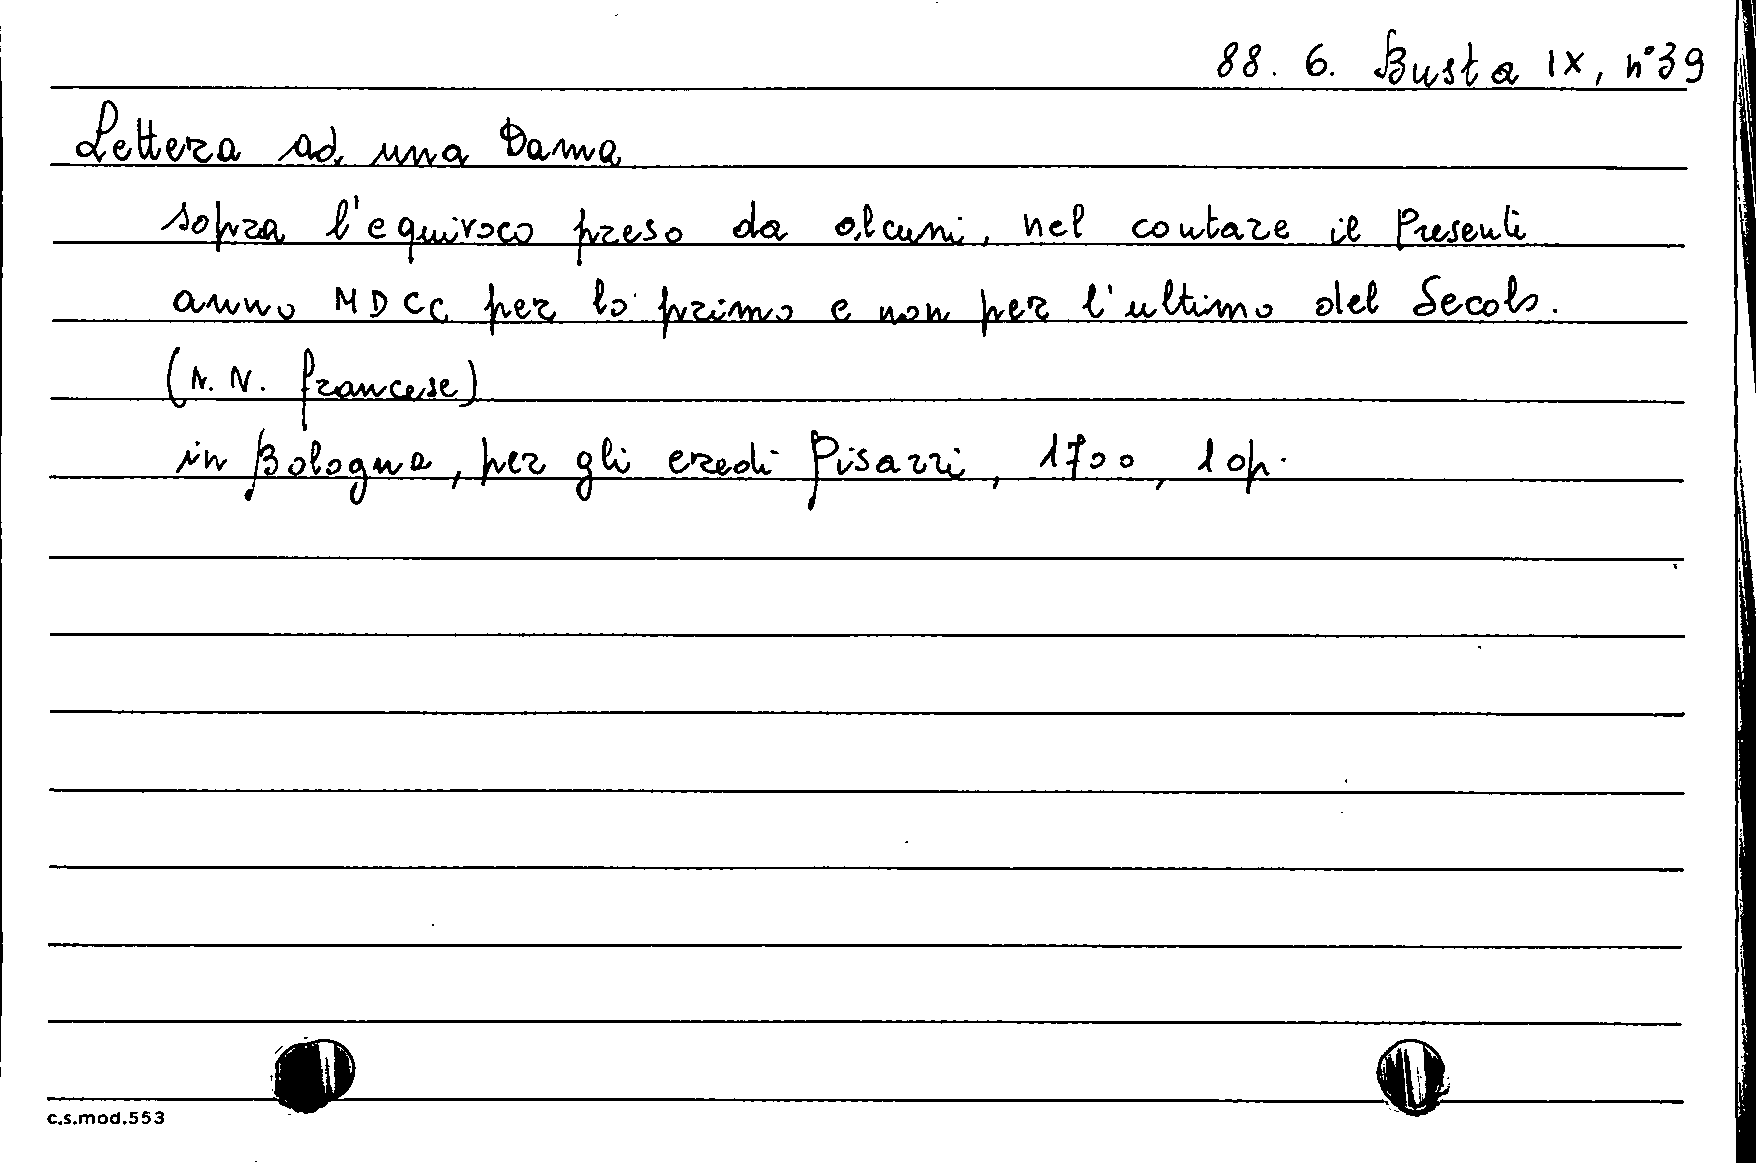 88. 6. Busta IX, n° 39
Lettera ad una Dama
sopra l'equivoco preso da alcuni, nel contare il Presenti
anno MDCC per lo primo e non per l'ultimo del Secolo.
(N. N. francese)
in Bologna, per gli eredi Pisarri, 1700, 10p.
c.s.mod.553